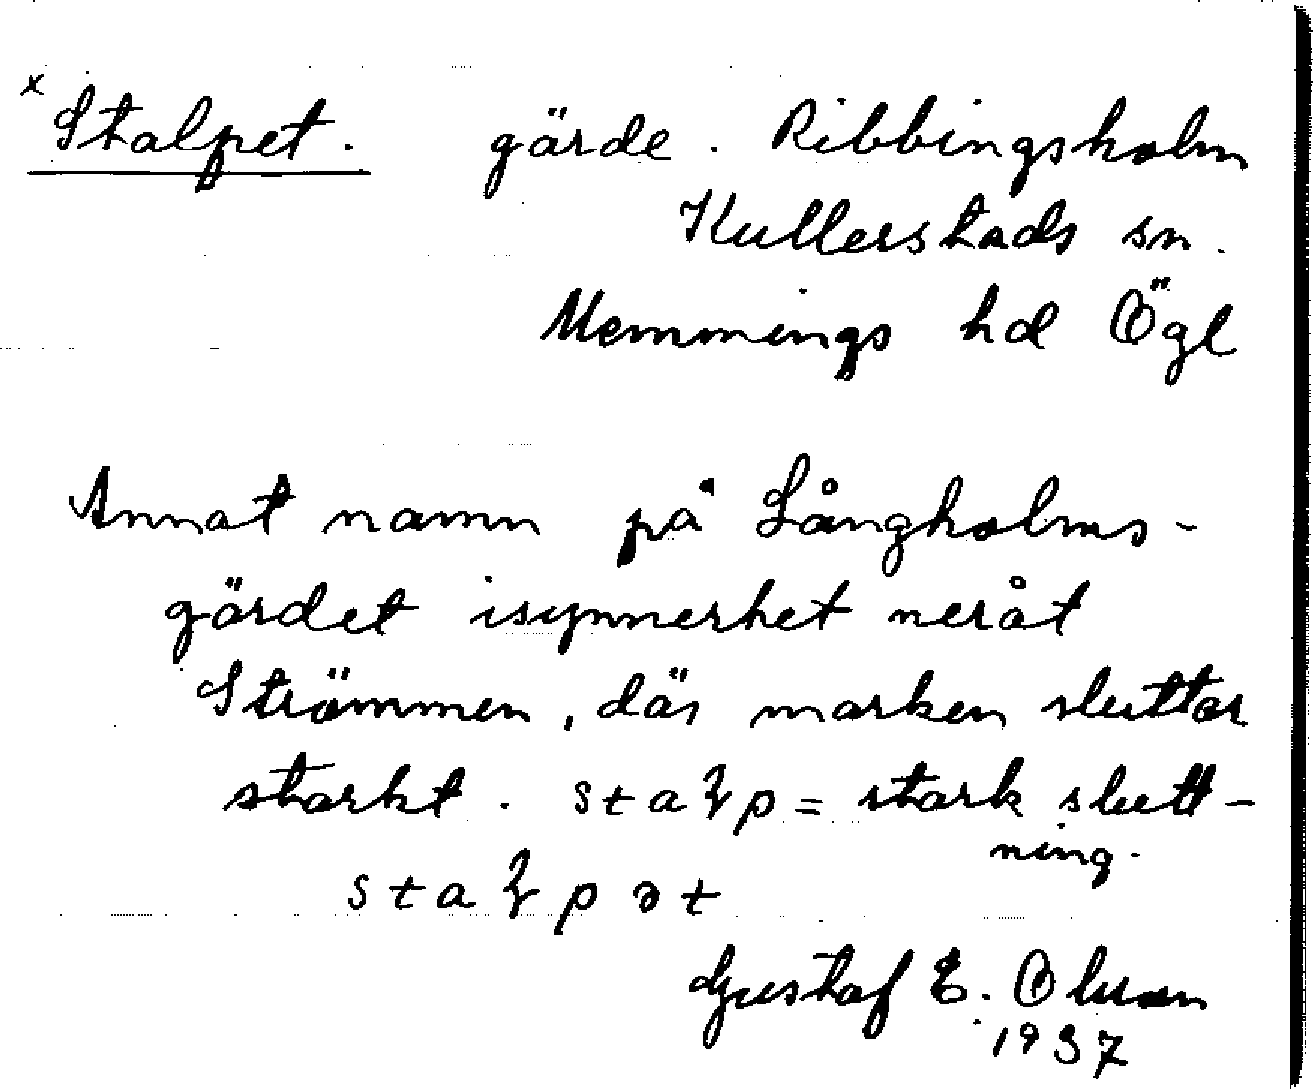 x Stalpet. gärde. Ribbingsholm
Kullerstads sn.
Memmings hd Ögl
Annat namn på Långholms-
gärdet isynnerhet neråt
Strömmen, där marken sluttar
starkt. staɽp = stark slutt-
ning.
staɽpət
Gustaf E. Olsson
1937